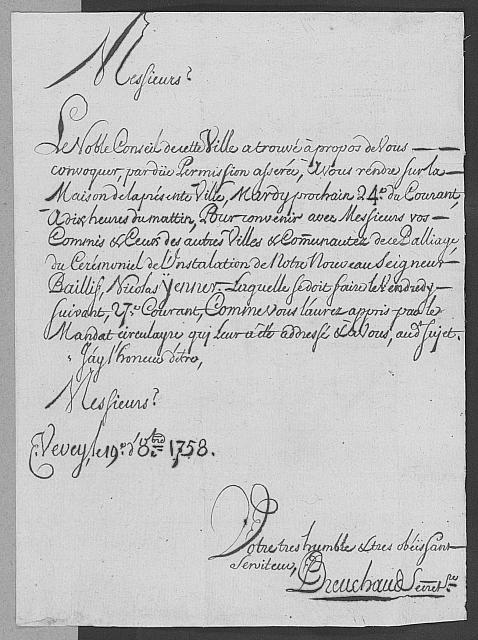 Messieurs
Le Noble Conseil de cette Ville a trouvé à propos de Vous
convoquer, par düe Permission asserée, à Vous rendre sur la
Maison de la présente Ville, Mardy prochain 24.e du Courant,
à dix heures du mattin, Pour convenir avec Messieurs vos
Commis & Ceux des autres Villes & Com̄unautez de ce Balliage,
du Cerémoniel de L'Instalation de Notre Nouveau Seigneur
Baillif, Nicolas Jenner. Laquelle se doit faire le Vendredy
suivant, 27.e Courant, Comme vous l'aurez appris par le
Mandat circulayre qui leur a été addressé & a Vous, au d. sujet.
J'ay l'honneur d'être,
Messieurs
Vevey, le 19.e d'8.bre 1758.
Votre tres humble & tres obéissant
Serviteur,
Secret.re